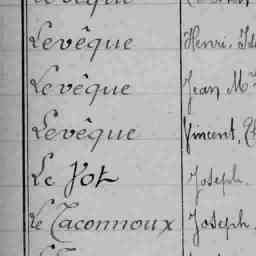 Levêque Henri,
Levêque Jean M
Levêque Vincent,
Le Pot Joseph.
Le Taconnoux Joseph